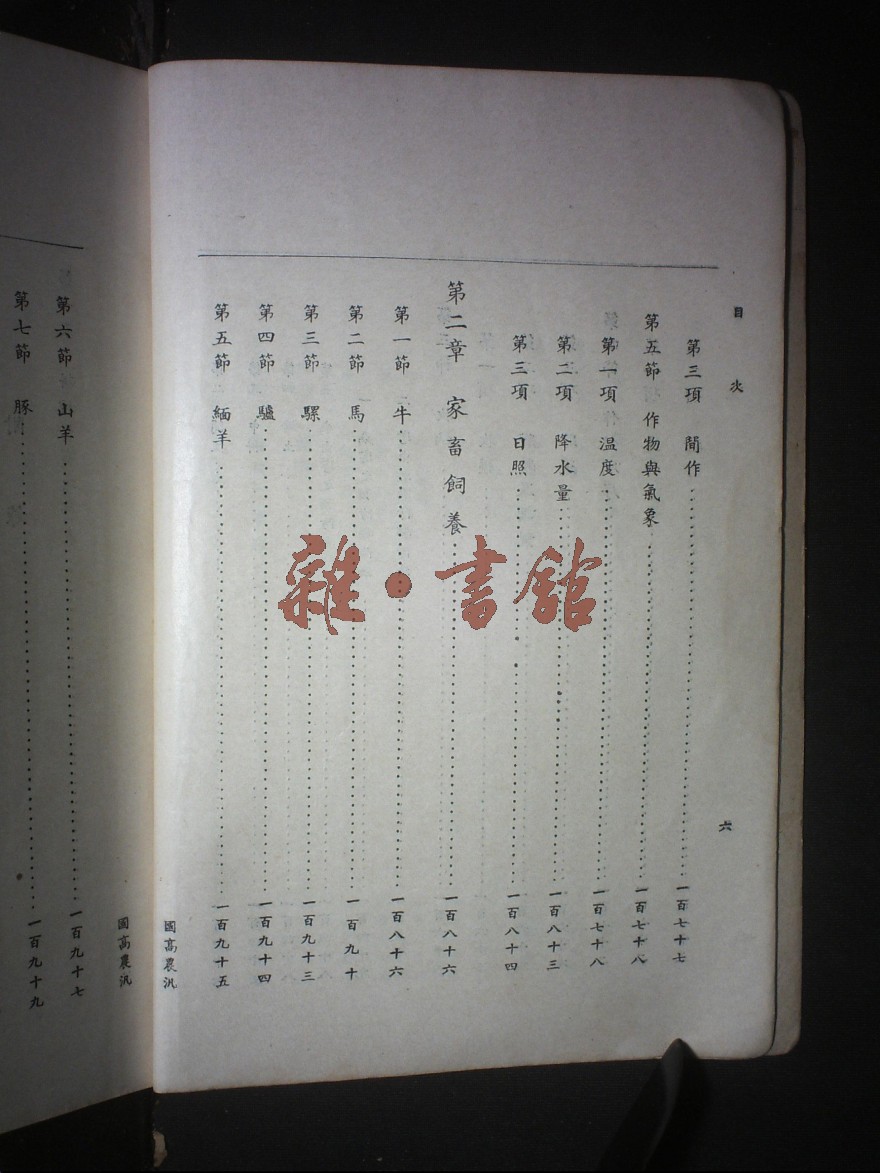 目次
六
第三項 間作 一百七十七
第五節 作物與氣象 一百七十八
第一項 温度 一百七十八
第二項 降水量 一百八十三
第三項 日照 一百八十四
第二章 家畜飼養 一百八十六
第一節 牛 一百八十六
第二節 馬 一百九十
第三節 騾 一百九十三
第四節 驢 一百九十四
第五節 緬羊 一百九十五
國高農汎
國高農汎
第六節 山羊 一百九十七
第七節 豚 一百九十九
雜·書館